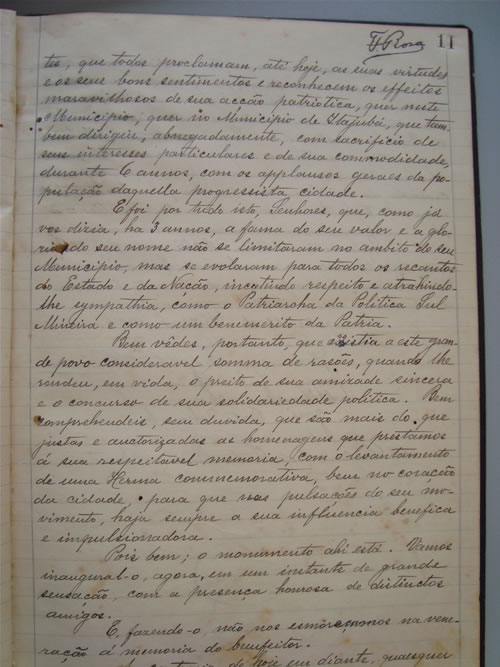 F Rosa 11
tes, que todos proclamam, até hoje, as suas virtudes
e os seus bons sentimentos e reconhecem os effeitos
maravilhosos de sua acção patriotica, quer neste
Municipio, quer no Municipio de Itajubá, que tam
bem dirigiu, abnegadamente, com sacrificio de
seus interesses particulares e de sua commodidade,
durante 6 annos, com os applausos geraes da po-
pulação daquella progressista cidade.
E foi por tudo isto, Senhores, que, como já
vos dizia, ha 3 annos, a fama do seu valor e a glo-
ria do seu nome não se limitaram no ambito do seu
Municipio, mas se evolaram para todos os recantos
do Estado e da Nação, incutindo respeito e atrahindo-
lhe sympathia, como o Patriarcha da Politica Sul
Mineira e como um benemerito da Patria.
Bem vêdes, portanto, que existia a este gran-
de povo consideravel somma de rasões, quando lhe
rendeu, em vida, o preito de sua amizade sincera
e o concurso de sua solidariedade politica. Bem
comprehendeis, sem duvida, que são mais do que
justas e auctorizadas as homenagens que prestamos
á sua respeitavel memoria, com o levantamento
de uma Herma commemorativa, bem no coração
da cidade, para que nas pulsações do seu mo-
vimento, haja sempre a sua influencia benefica
e impulsionadora.
Pois bem; o monumento ahi está. Vamos
inaugural-o, agora, em um instante de grande
sensação, com a presença honrosa de distinctos
amigos.
E, fazendo-o, não nos esmoreçamos na vene-
ração á memoria do benfeitor.
de hoje em diante, quaesquer